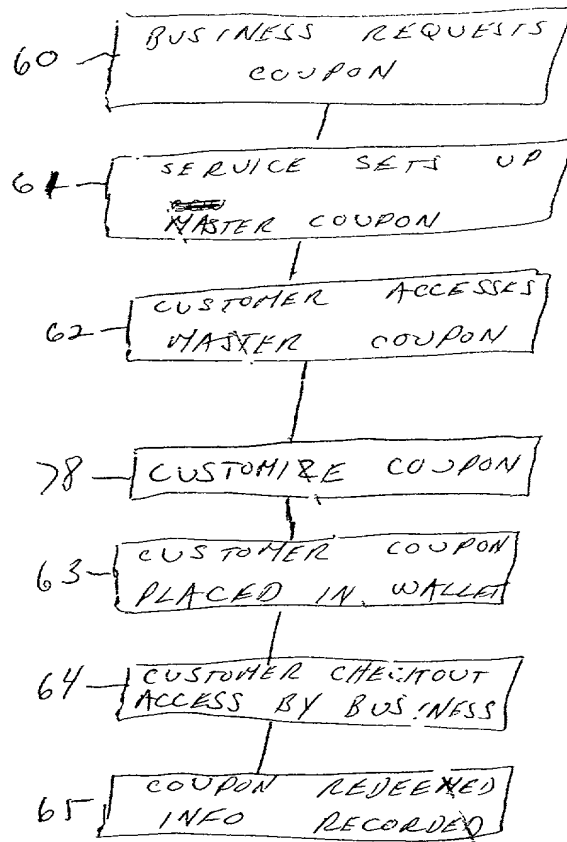 60
BUSINESS REQUESTS
COUPON
61
SERVICE SETS UP
MASTER COUPON
62
CUSTOMER ACCESSES
MASTER COUPON
78
CUSTOMIZE COUPON
63
CUSTOMER COUPON
PLACED IN WALLET
64
CUSTOMER CHECKOUT
ACCESS BY BUSINESS
65
COUPON REDEEMED
INFO RECORDED